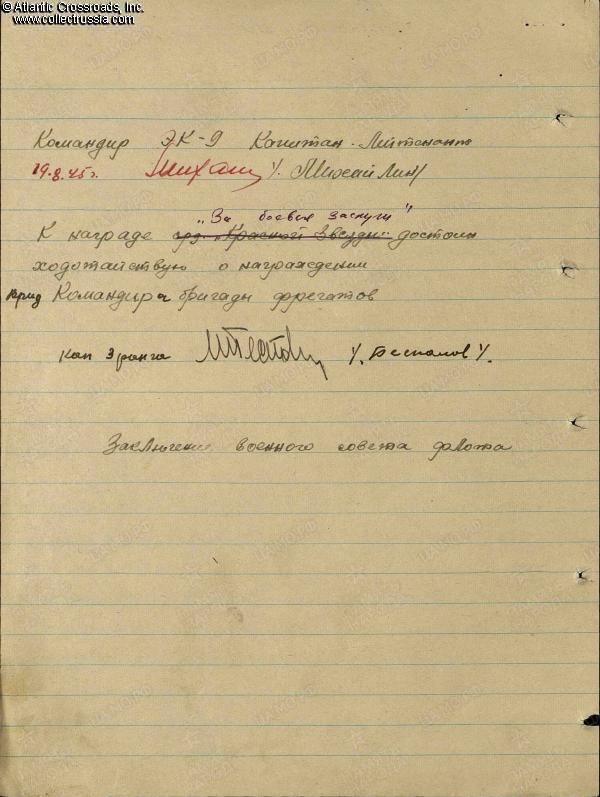 © Atlantic Crossroads, Inc.
www.collectrussia.com
Командир ЭК-9 Капитан-Лейтенант
19.8.45г. /Михайлин/
„За боевые заслуги"
К награде орд. „Красной Звезды" достоин
ходатайствую о награждении
Врид Командира бригады фрегатов
Кап 3 ранга /.Беспалов/.
Заключение военного совета флота